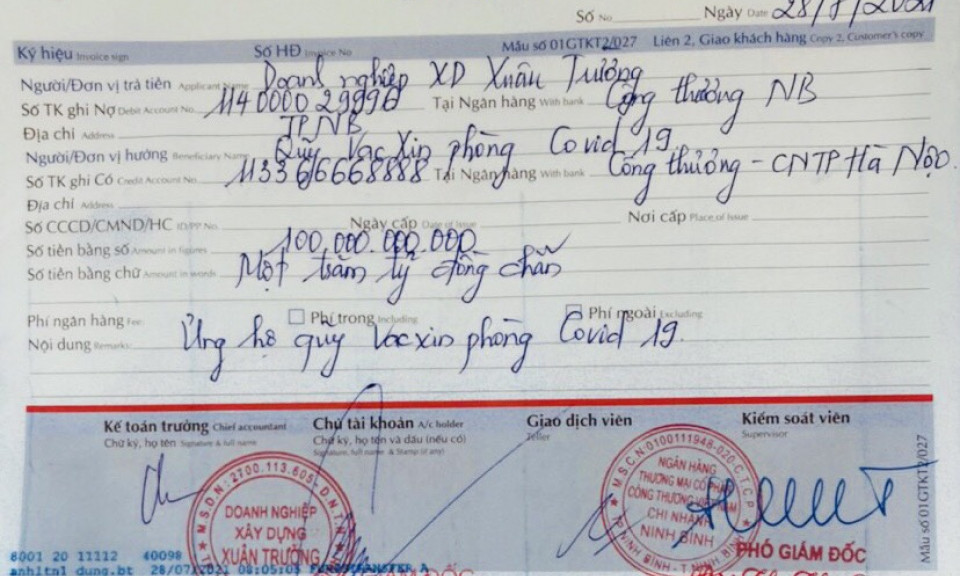 Số No. Ngày Date 28/7/2021
Ký hiệu Invoice sign Số HĐ Invoice No Mẫu số 01GTKT2/027 Liên 2, Giao khách hàng Copy 2, Customer's copy
Người/Đơn vị trả tiền Applicant Name Doanh nghiệp XD Xuân Trường
Số TK ghi Nợ Debit Account No. Tại Ngân hàng With bank Công thương NB
Địa chỉ Address TP NB
Người/Đơn vị hưởng Beneficiary Name Quỹ Vacxin phòng Covid 19
Số TK ghi Có Credit Account No Tại Ngân hàng With bank Công thương - CNTP Hà Nội.
Địa chỉ Address
Số CCCD/CMND/HC ID/PP No. Ngày cấp Date of Issue Nơi cấp Place of Issue
Số tiền bằng số Amount in figures 100.000.000.000
Số tiền bằng chữ Amount in words Một trăm tỷ đồng chẵn
Phí ngân hàng Fee: Phí trong Including Phí ngoài Excluding
Nội dung Remarks: Ủng hộ quỹ Vacxin phòng Covid 19.
Kế toán trưởng Chief accountant Chủ tài khoản A/c holder Giao dịch viên Kiểm soát viên
Chữ ký, họ tên Signature & full name Chữ ký, họ tên và dấu (nếu có) Teller Supervisor
Signature, full name & Stamp (if any)
M.S.D.N: 2700.113.605
DOANH NGHIỆP
XÂY DỰNG
XUÂN TRƯỜNG
M.S.C.N:0100111948-020-C.T.C.P
NGÂN HÀNG
THƯƠNG MẠI CỔ PHẦN
CÔNG THƯƠNG VIỆT NAM
CHI NHÁNH
NINH BÌNH
PHÓ GIÁM ĐỐC
Mẫu số 01GTKT2/027
8001 20 11112 40098
anhltn1 dung.bt 28/07/2021 08:05:05